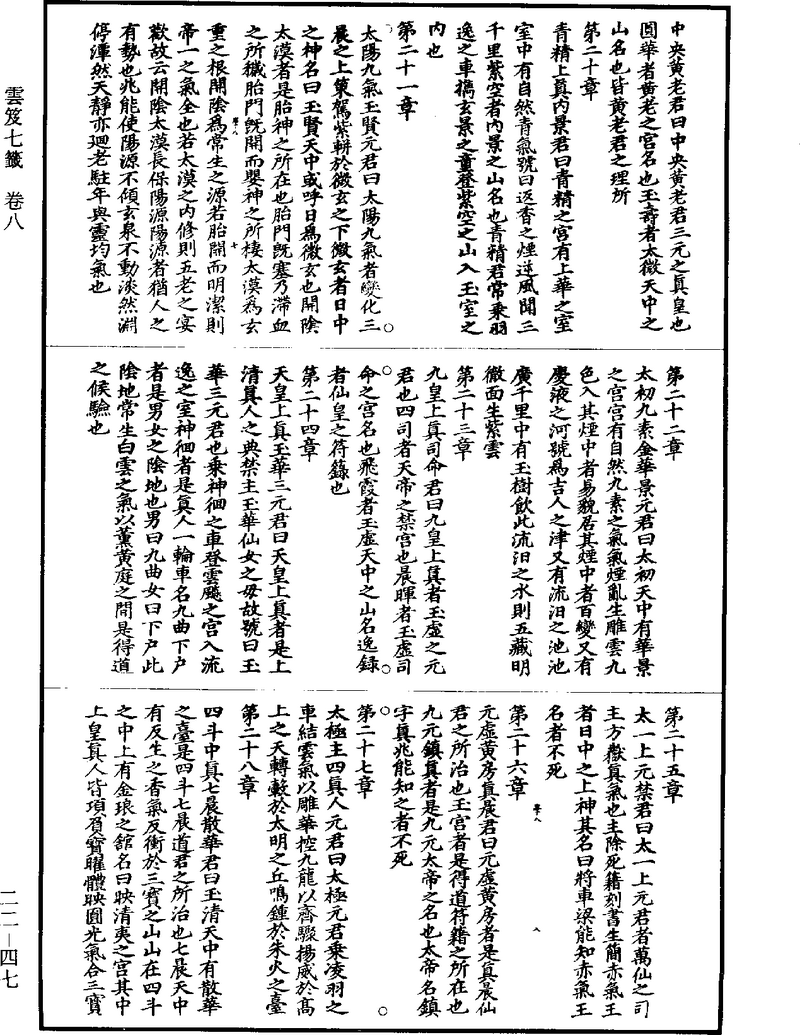 雲笈七籤　卷八
中央黃老君曰中央黃老君三元之真皇也
圓華者黃老之宮名也玉壽者太微天中之
山名也皆黃老君之理所
第二十章
青精上真內景君曰青精之宮有上華之室
室中有自然青氣號曰返香之煙逆風聞三
千里紫空者內景之山名也青精君常乘羽
逸之車攜玄景之童登紫空之山入玉室之
內也
第二十一章
太陽九氣玉賢元君曰太陽九氣者變化三
晨之上策駕紫軿於微玄之下微玄者日中
之神名曰玉賢天中或呼日為微玄也開陰
太漠者是胎神之所在也胎門既塞乃滯血
之所穢胎門既開而嬰神之所棲太漠為玄
學八　七
重之根開陰為常生之源若胎開而明潔則
帝一之氣全也若太漠之內修則五老之宴
歡故云開陰太漠長保陽源陽源者猶人之
有勢也兆能使陽源不傾玄泉不動淡然淵
停渾然天靜亦迴老駐年與靈均氣也
第二十二章
太初九素金華景元君曰太初天中有華景
之宮宮有自然九素之氣氣煙亂生雕雲九
色入其煙中者易貌居其煙中者百變又有
慶液之河號為吉人之津又有流汨之池池
廣千里中有玉樹飲此流汨之水則五藏明
徹面生紫雲
第二十三章
九皇上真司命君曰九皇上真者玉虛之元
君也四司者天帝之禁宮也晨暉者玉虛司
命之宮名也飛霞者玉虛天中之山名逸錄
者仙皇之符籙也
第二十四章
天皇上真玉華三元君曰天皇上真者是上
清真人之典禁主玉華仙女之母故號曰玉
華三元君也乘神徊之車登雲飈之宮入流
逸之室神徊者是真人一輪車名九曲下戶
者是男女之陰地也男曰九曲女曰下戶此
陰地常生白雲之氣以薰黃庭之間是得道
之候驗也
第二十五章
太一上元禁君曰太一上元君者萬仙之司
主方嶽真氣也主除死籍刻書生簡赤氣王
者日中之上神其名曰將車梁能知赤氣王
名者不死
第二十六章
學八　八
元虛黃房真晨君曰元虛黃房者是真晨仙
君之所治也玉宮者是得道符籍之所在也
九元鎮真者是九元太帝之名也太帝名鎮
字真兆能知之者不死
第二十七章
太極主四真人元君曰太極元君乘凌羽之
車結雲氣以雕華控九龍以齊驟揚威於高
上之天轉轂於太明之丘鳴鍾於朱火之臺
第二十八章
四斗中真七晨散華君曰玉清天中有散華
之臺是四斗七晨道君之所治也七晨天中
有反生之香氣反衝於三寶之山山在四斗
之中上有金琅之舘名曰映清夷之宮其中
上皇真人皆項負寶曜體映圓光氣合三寶
二二—四七